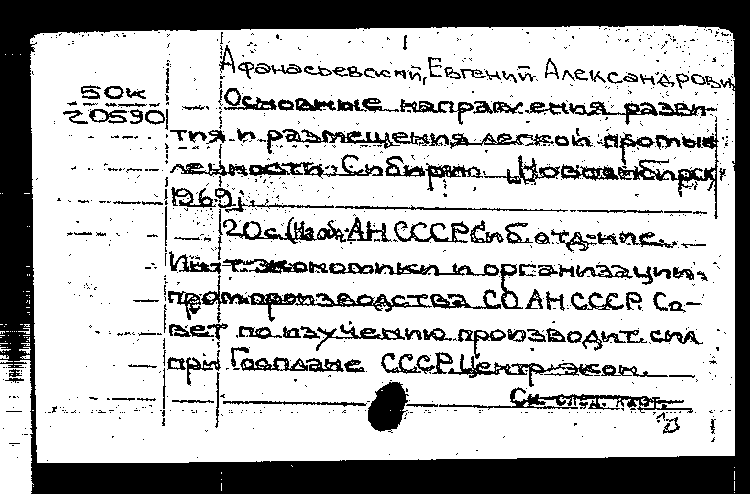 Афанасьевский, Евгений Александрович
50к
20590
Основные направления разви-
тия и размещения легкой промыш-
ленности Сибири. Новосибирск,
1969.
20с. (На обл: АН СССР. Сиб. отд-ние.
Ин-т экономики и организации
пром. производства СО АН СССР. Со-
вет по изучению производит. сил
при Госплане СССР. Центр. экон.
См. след. карт.